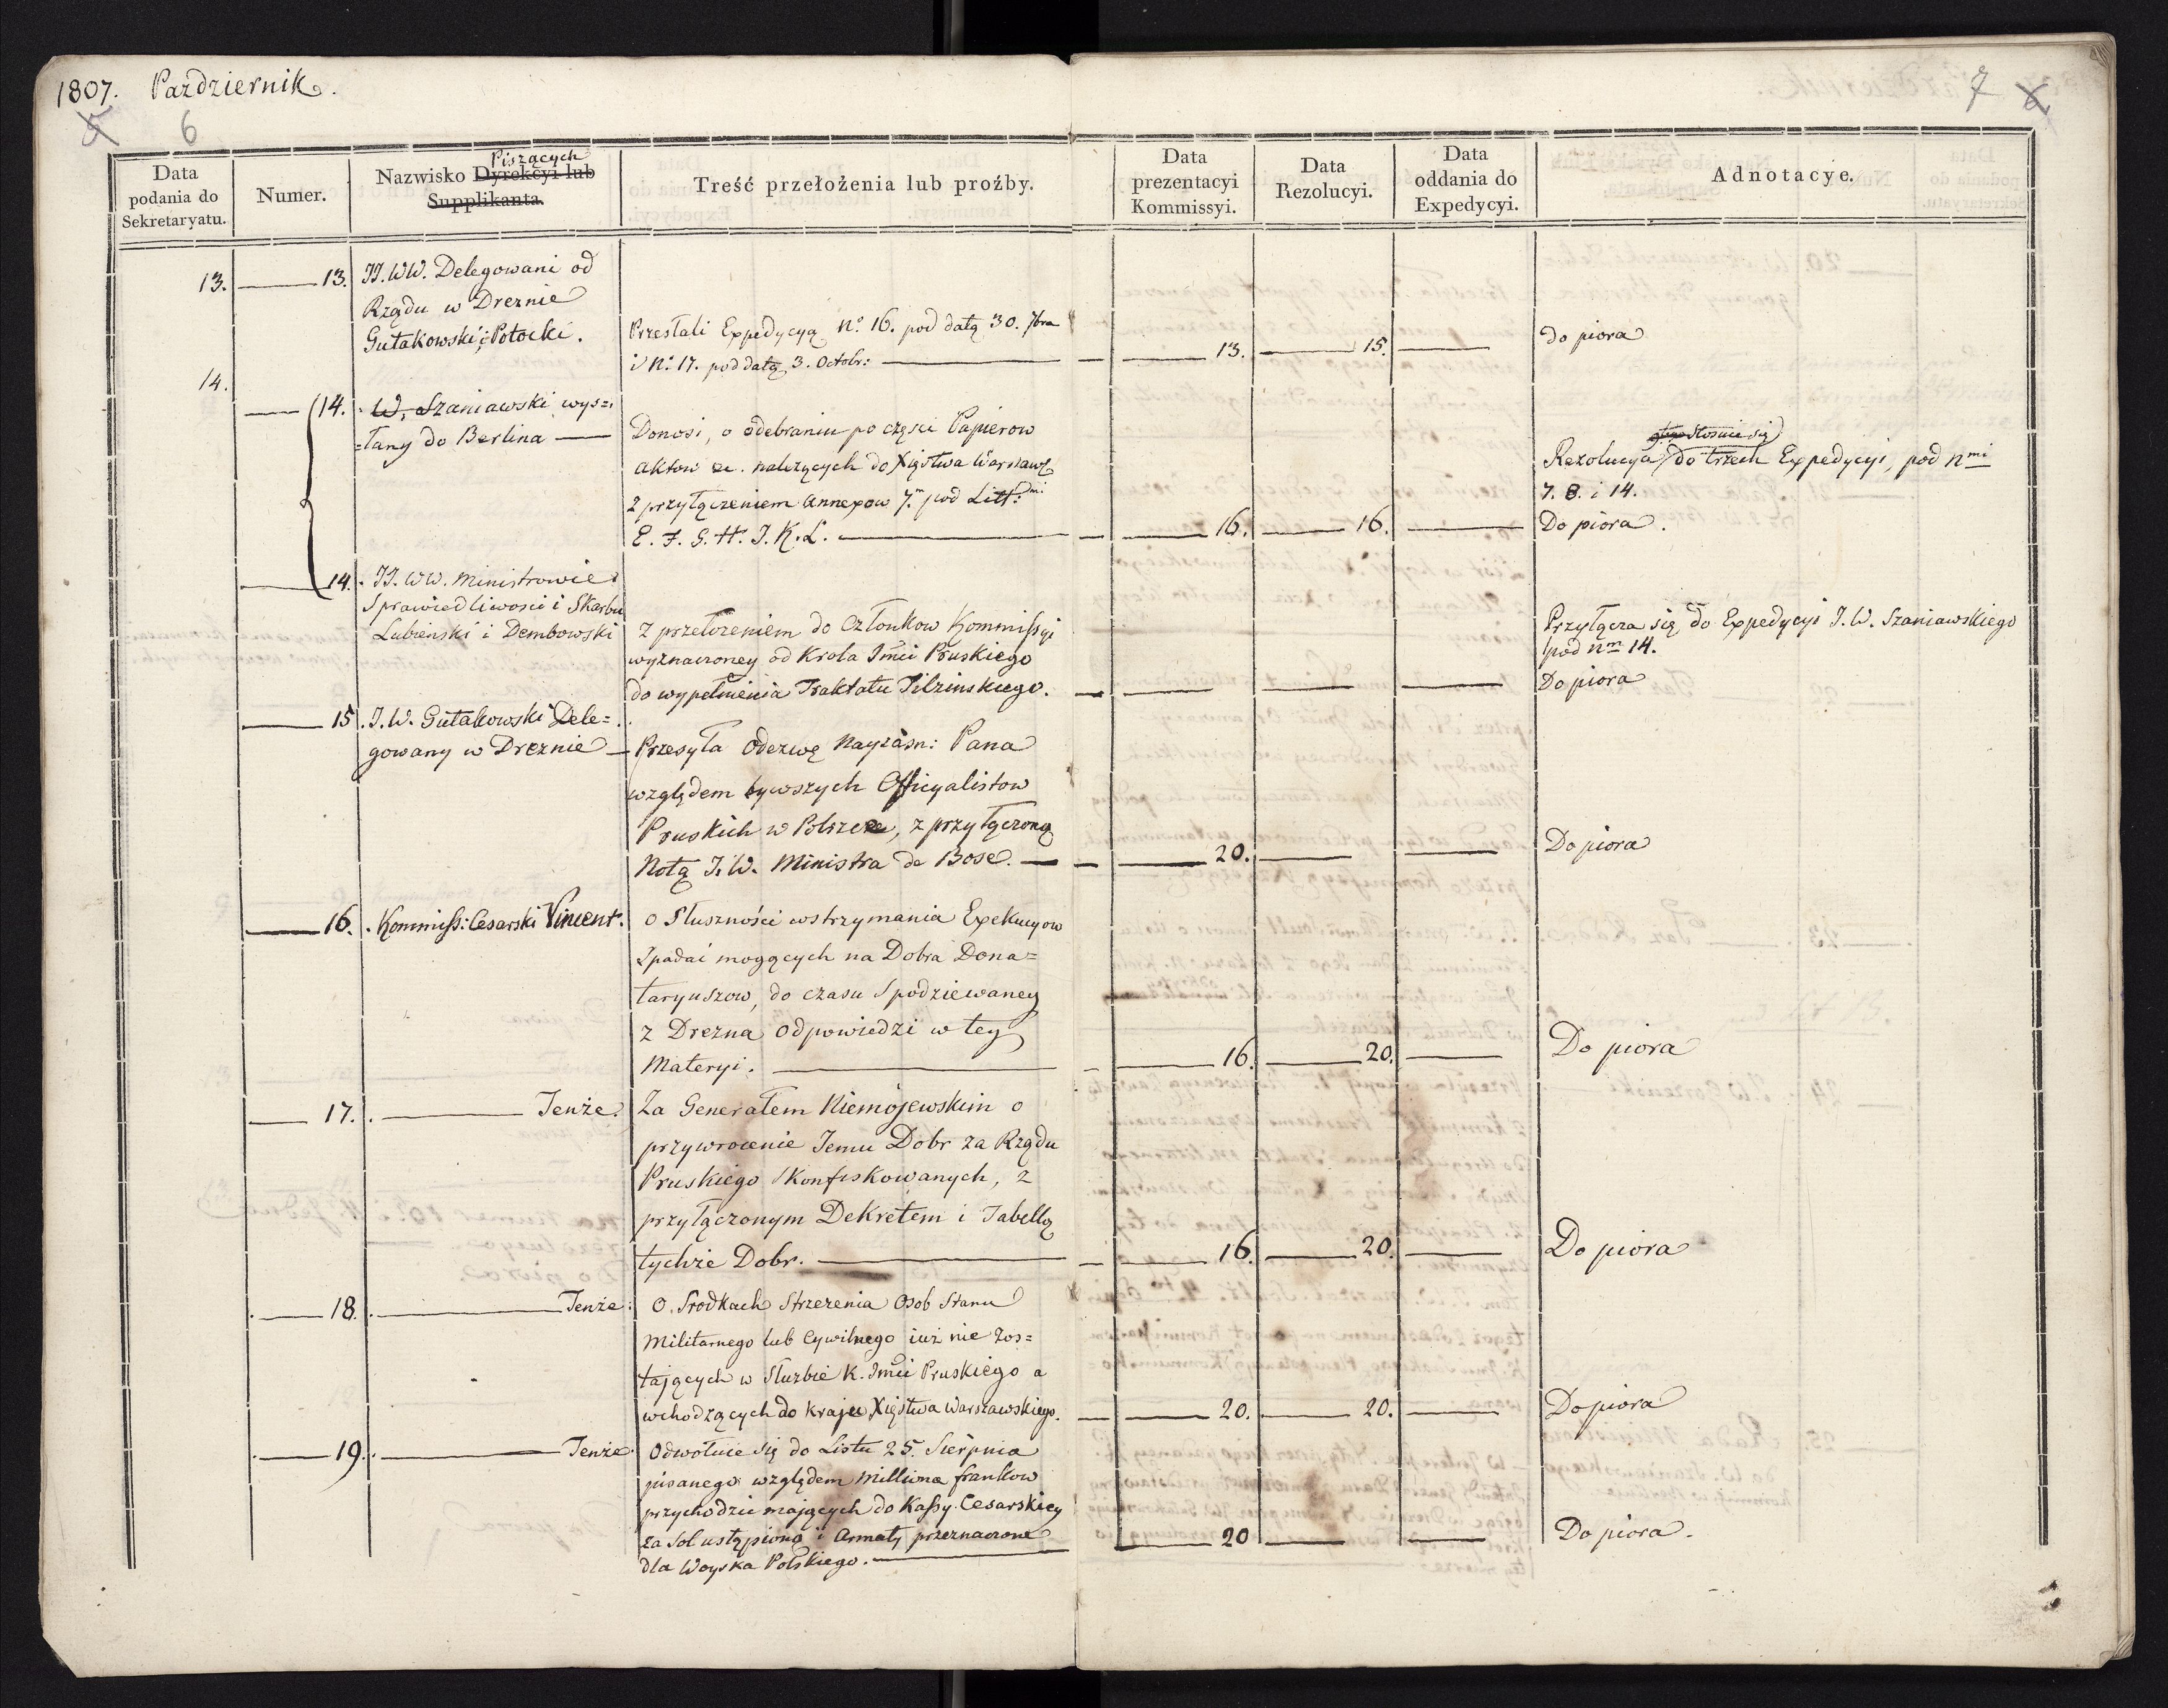 1807. Pazdziernik.
5 6
7 6
Data podania do Sekretaryatu.
Numer.
Piszących
Nazwisko Dyrekcyi lub Supplikanta.
Treść przełożenia lub proźby.
Data prezentacyi Kommissyi.
Data Rezolucyi.
Data oddania do Expedycyi.
Adnotacye.
13. 13. JJ. WW. Delegowani od
Rządu w Dreznie
Gutakowski i Potocki.
Przesłali Expedycyą No. 16. pod datą 30. 7bra
i No. 17. pod datą 3. Octobr: 13. 15. do piora
14.
14. W. Szaniawski wys=
=łany do Berlina
Donosi, o odebraniu po części Papierow
aktow &c. należących do Xięstwa Warszaw:
z przyłączeniem Annexow 7m pod Litt:
E. F. G. H. I. K. L. 16. 16.
stosuie się
Rezolucya do trzech Expedycyi, pod nmi
7. 8. i 14.
Do piora.
14. JJ. WW. Ministrowie
Sprawiedliwości i Skarbu
Lubieński i Dembowski
z przełożeniem do Członkow Kommissyi
wyznaczoney od Krola Jmci Pruskiego
do wypełnienia Traktatu Tilzinskiego.
Przyłącza się do Expedycyi J. W. Szaniawskiego
pod nm 14.
Do piora
15. J. W. Gutakowski Dele=
gowany w Dreznie
Przesyła Odezwę Nayiasn: Pana
względem bywszych Officyalistow
Pruskich w Polszcze, z przyłączoną
Notą J. W. Ministra de Bose. 20. Do piora
16. Kommiss: Cesarski Vincent.
o Słuszności wstrzymania Exekucyow
Spadać mogących na Dobra Dona=
taryuszow, do czasu Spodziewaney
z Drezna odpowiedzi w tey
Materyi. 16. 20. Do piora
17. Tenże
Za Generałem Niemojewskim o
przywrocenie Jemu Dobr za Rządu
Pruskiego Skonfiskowanych, z
przyłączonym Dekretem i Tabellą
tychże Dobr. 16. 20. Do piora
18. Tenże
o Srodkach Strzeżenia Osob Stanu
Militarnego lub Cywilnego iuż nie zos=
tających w Służbie K. Jmci Pruskiego a
wchodzących do Kraju Xięstwa Warszawskiego. 20. 20. Do piora
19. Tenże
Odwołuie się do Listu 25. Sierpnia
pisanego względem Milliona frankow
przychodzić mających do Kassy Cesarskiey
za Sol ustąpioną i Armaty przeznaczone
dla Woyska Polskiego. 20 Do piora.